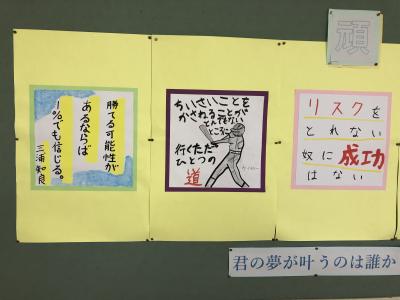 頑
勝てる可能性が
あるならば
1%でも信じる。
三浦知良
ちいさいことを
かさねることが
とんでもない
ところに
行くただ
ひとつの
道
リスクを
とれない
奴に成功
はない
君の夢が叶うのは誰か